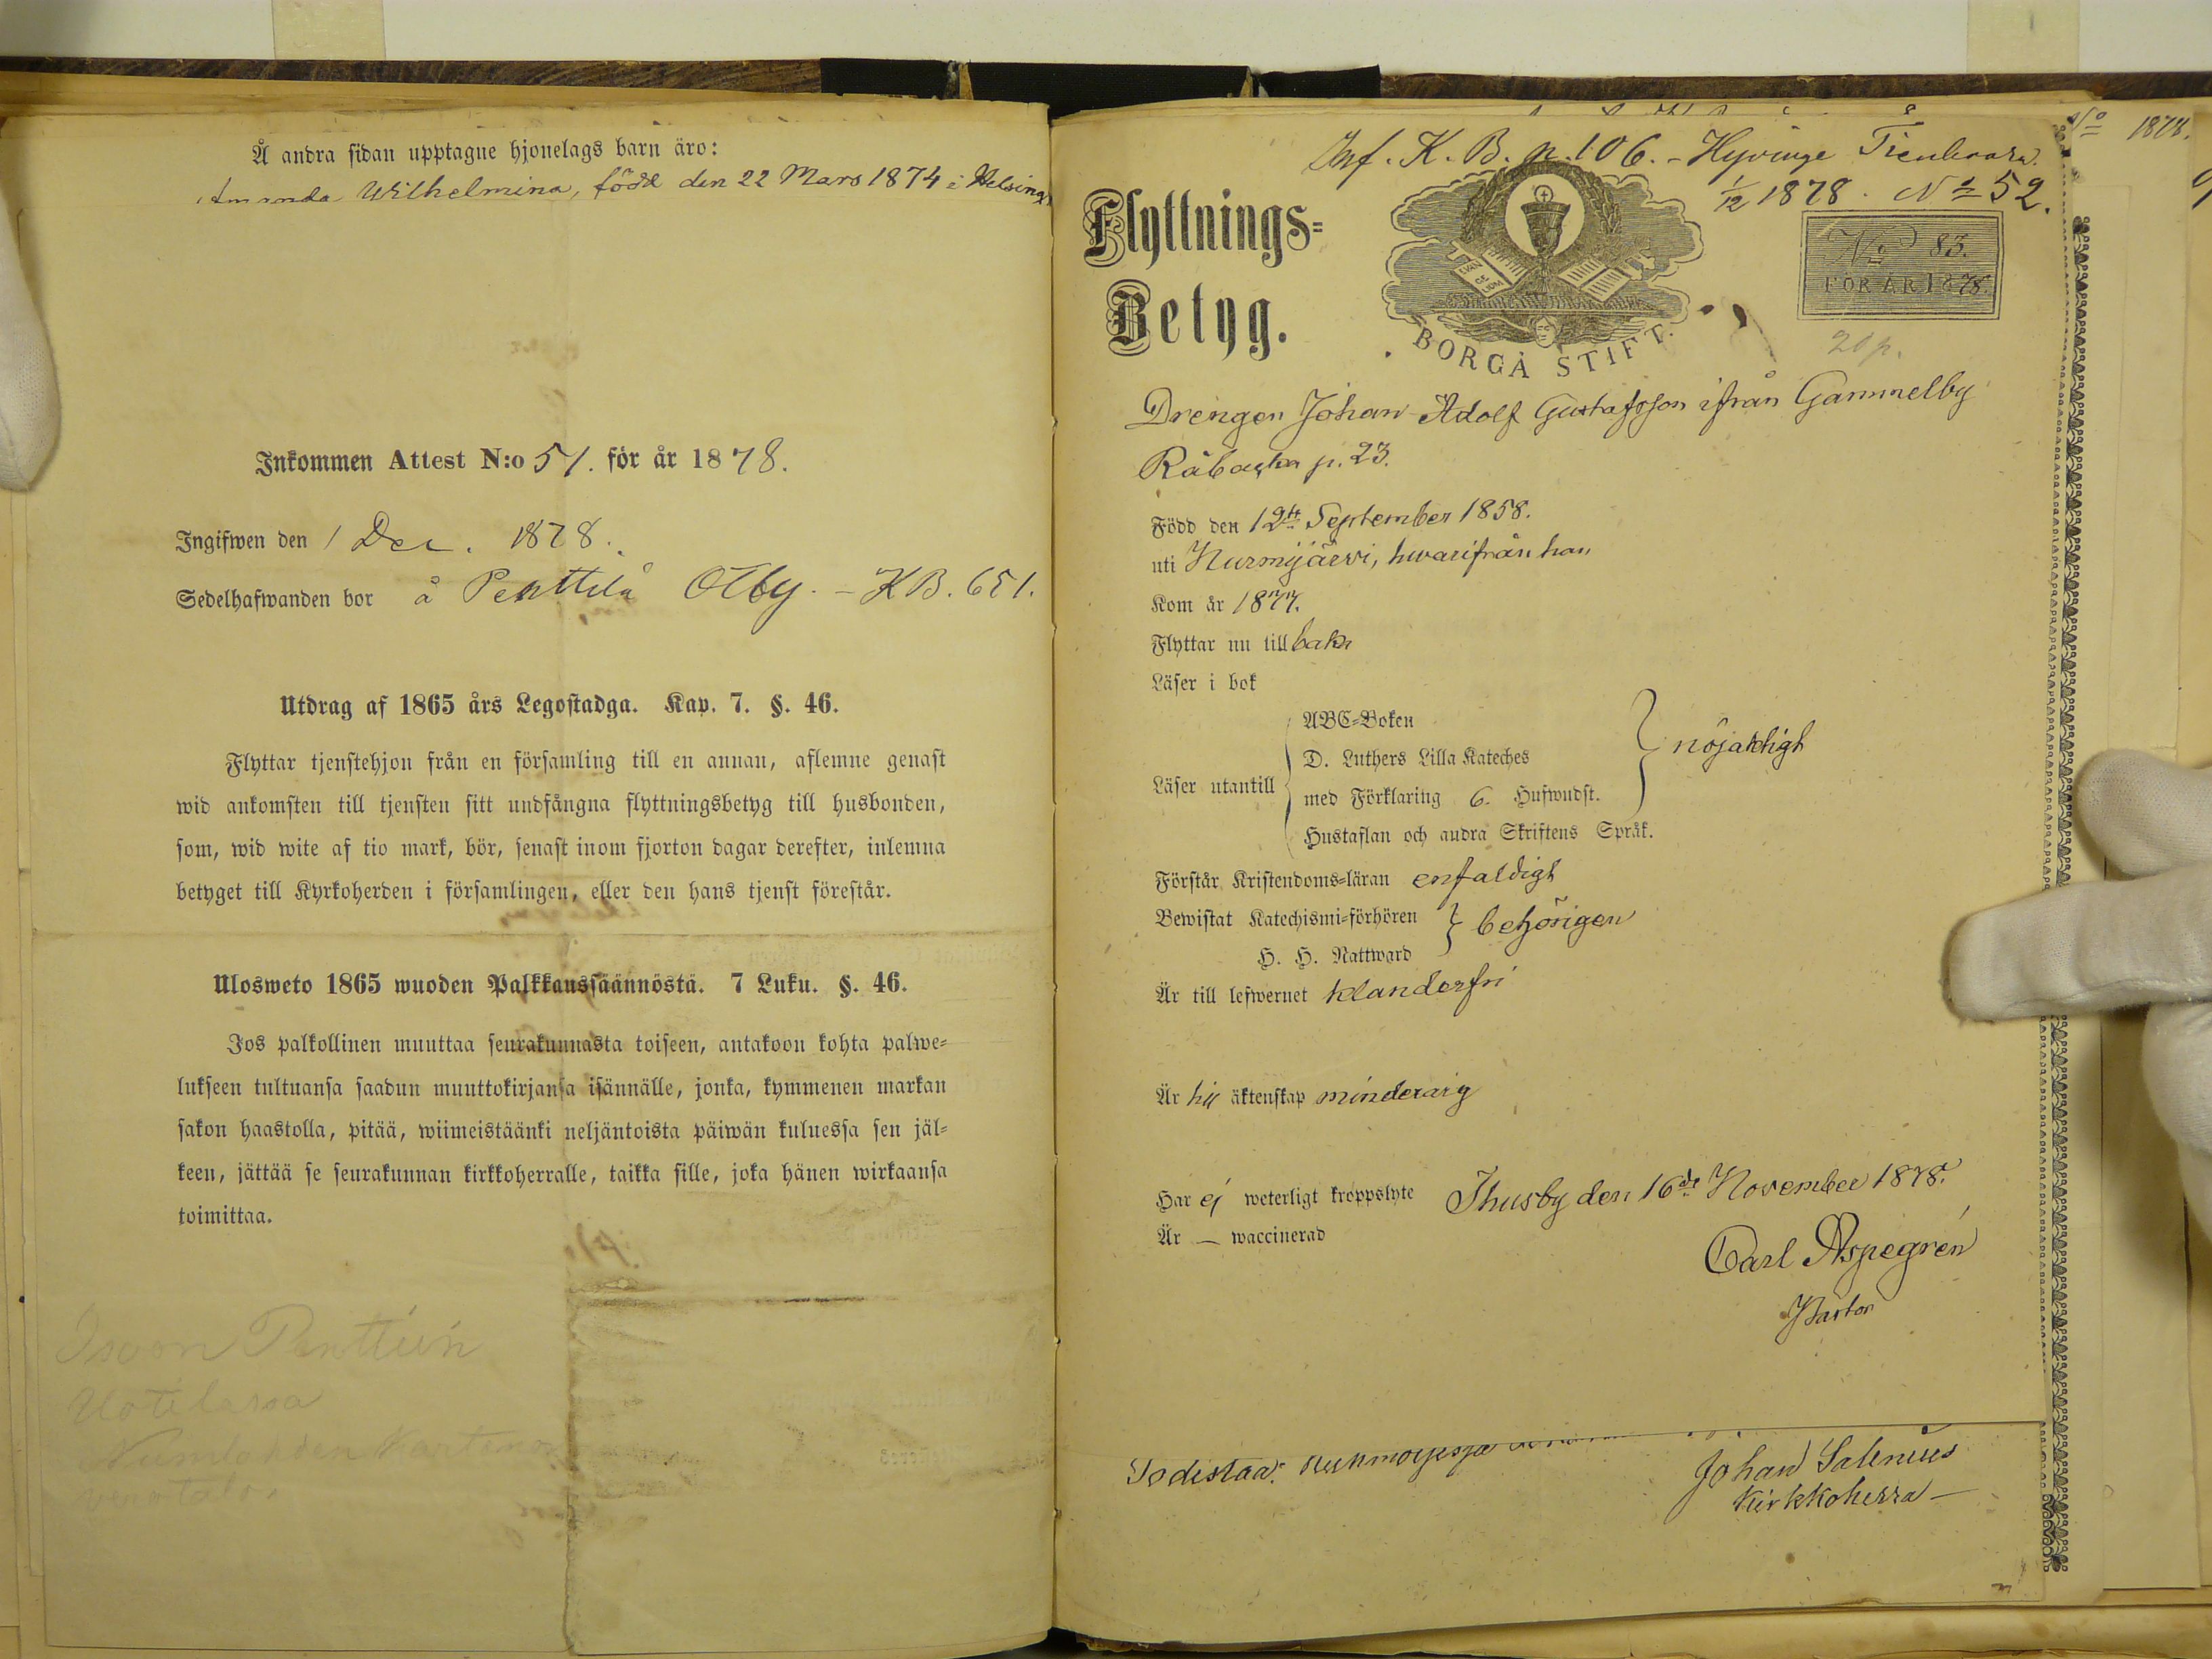 Å andra sidan upptagne hjonelags barn äro:
Amanda Wilhelmina, född den 22 Mars 1874 i Helsing
Inkommen Attest N:o 51. för år 1878.
Ingifwen den 1 Dec. 1878.
Sedelhafwanden bor å Penttilä Otby. - KB. 651.
Utdrag af 1865 års Legostadga. Kap. 7. §. 46.
Flyttar tjenstehjon från en församling till en annan, aflemne genast
wid ankomsten till tjensten sitt undfångna flyttningsbetyg till husbonden,
som, wid wite af tio mark, bör, senast inom fjorton dagar derefter, inlemna
betyget till Kyrkoherden i församlingen, eller den hans tjenst förestår.
Ulosweto 1865 wuoden Palkkaussäännöstä. 7 Luku. §. 46.
Jos palkollinen muuttaa seurakunnasta toiseen, antakoon kohta palwe-
lukseen tultuansa saadun muuttokirjansa isännälle, jonka, kymmenen markan
sakon haastolla, pitää, wiimeistäänki neljäntoista päiwän kuluessa sen jäl-
keen, jättää se seurakunnan kirkkoherralle, taikka sille, joka hänen wirkaansa
toimittaa.
Isoon Penttiin
Uotilassa
Inf. K. B. p. 106. - Hyvinge
1/12 1878. No 52.
Flyttnings-
Betyg.
EVAN
GE
LIUM
BORGÅ STIFT.
No 83.
FÖR ÅR 1878.
20 p.
Drengen Johan Adolf Gustafsson ifrån Gammelby
Råbacka p. 23.
Född den 12te September 1858.
uti Nurmijärvi, hwarifrån han
Kom år 1877.
Flyttar nu tillbaka
Läser i bok
Läser utantill
ABC-Boken
D. Luthers Lilla Kateches
med Förklaring 6. Hufwudst.
Hustaflan och andra Skriftens Språk.
nöjaktigt
Förstår Kristendoms-läran enfaldigt
Bewistat Katechismi-förhören
H. H. Nattward
behörigen
Är till lefwernet klanderfri
Är till äktenskap minderårig
Har ej weterligt kroppslyte
Är — waccinerad
Thusby den 16de November 1878.
Carl Aspegrén
Pastor
Todistaa:
Johan Salenius
Kirkkoherra -
No 1878.